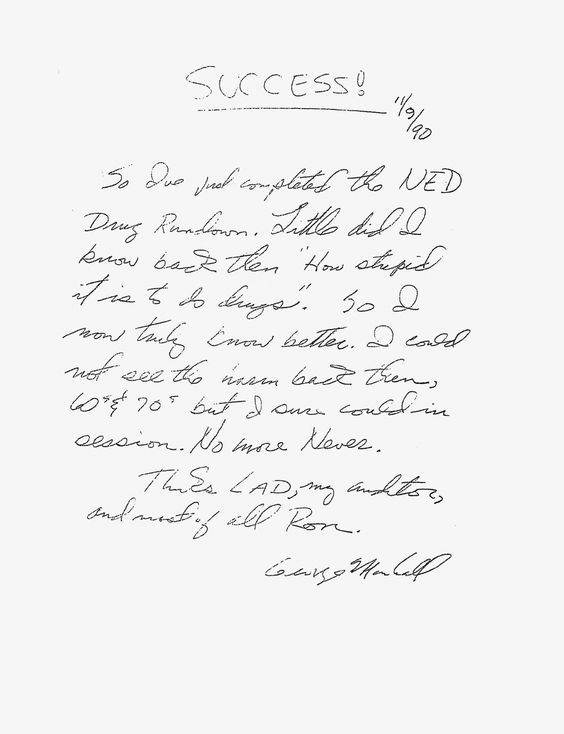 SUCCESS!
11/9/90
So I've just completed the NED
Drug Rundown. Little did I
know back then "How stupid
it is to do drugs". So I
now truly know better. I could
not see the harm back then,
60's & 70's but I sure could in
session. No more Never.
Thks LAD, my auditor,
and most of all Ron.
George